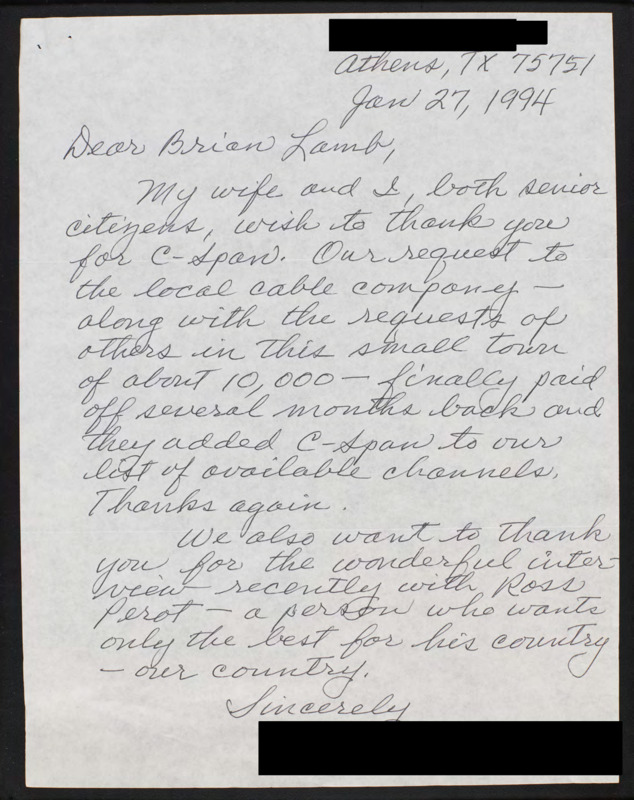 Athens, TX 75751
Jan 27, 1994
Dear Brian Lamb,
My wife and I, both senior
citizens, wish to thank you
for C-Span. Our request to
the local cable company –
along with the requests of
others in this small town
of about 10,000 – finally paid
off several months back and
they added C-Span to our
list of available channels.
Thanks again.
We also want to thank
you for the wonderful inter-
view recently with Ross
Perot – a person who wants
only the best for his country
– our country.
Sincerely